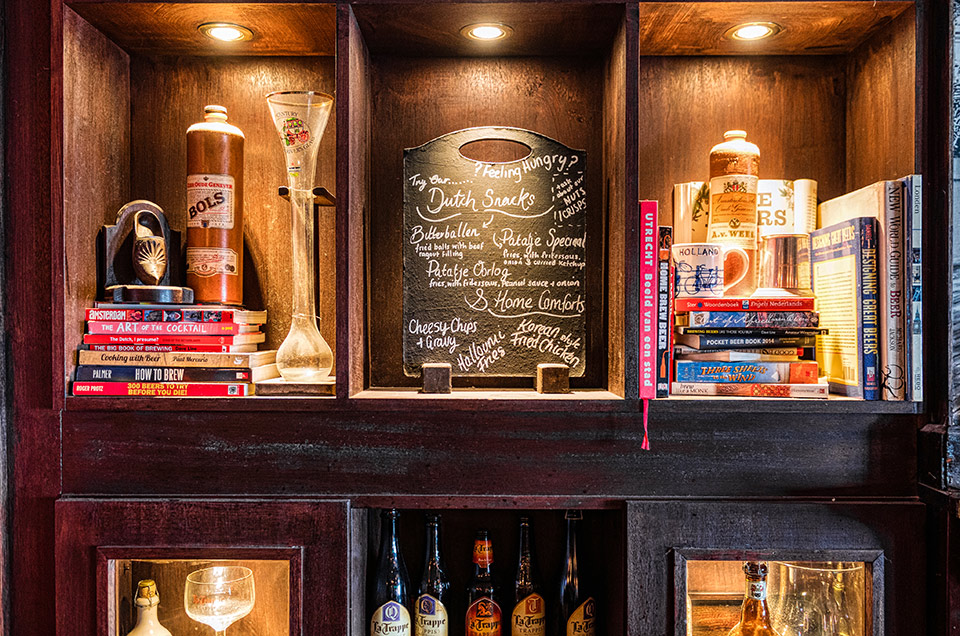 OUDE GENEVER
BOLS
AMSTERDAM
THE ART OF THE COCKTAIL
The Dutch, I presume?
THE BIG BOOK OF BREWING
Cooking with Beer Paul Mercurio
PALMER HOW TO BREW
ROGER PROTZ 300 BEERS TO TRY
BEFORE YOU DIE!
? Feeling Hungry?
Try Our......
Dutch Snacks
NUTS
CRISPS
Bitterballen
fried balls with beef
ragout filling
Patatje Speciaal
Fries, with fritessaus,
onion & curried ketchup
Patatje Oorlog
fries, with fritessaus, peanut sauce + onion
& Home Comforts
Cheesy Chips
& Gravy
Halloumi
Fries
Korean Style
Fried Chicken
UTRECHT Beeld van een stad
HOME BREW BEER
HOLLAND
A.v. WEES
Woordenboek Engels Nederlands
POCKET BEER BOOK 2014
THREE SHEETS TO THE WIND
& MONK
DESIGNING GREAT BEERS
DESIGNING GREAT BEERS
BEER
London
LA TRAPPE
LA TRAPPE
La Trappe
LA TRAPPE
LA TRAPPE